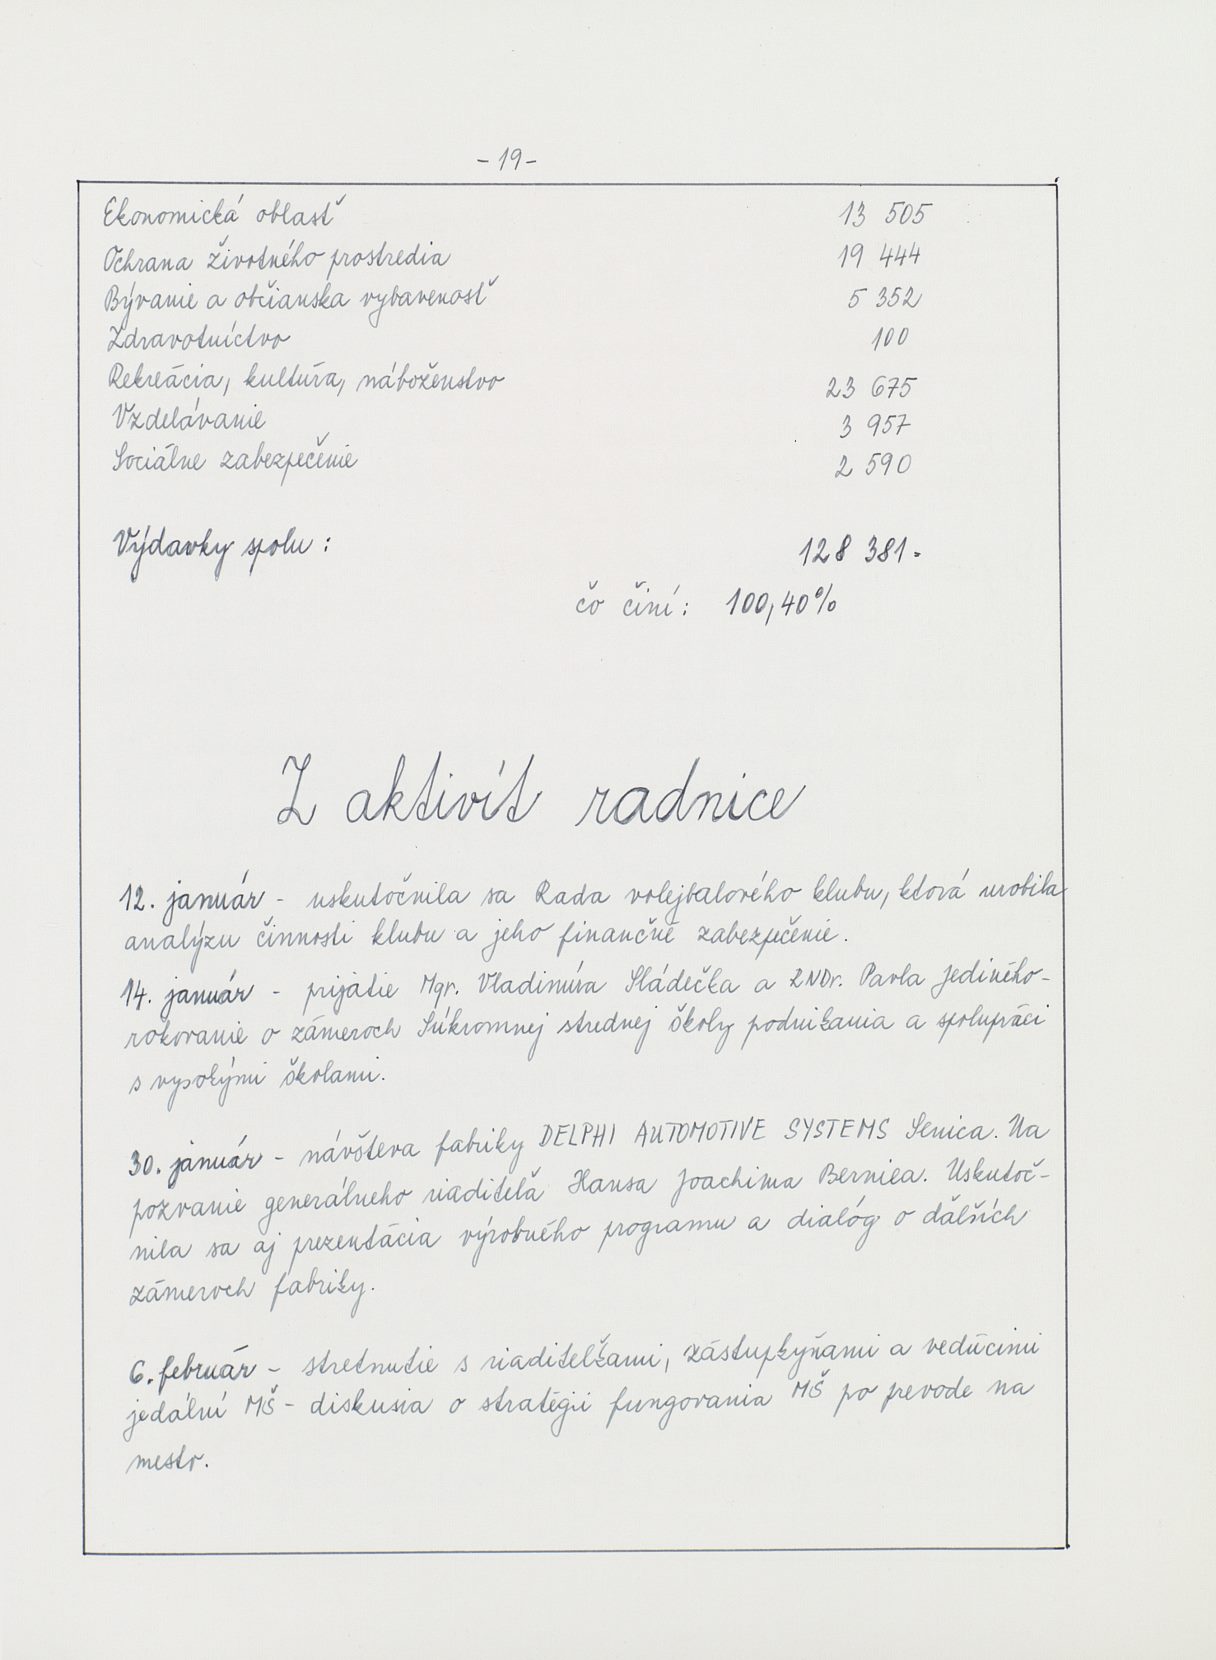 - 19 -
Ekonomická oblasť 13 505
Ochrana životného prostredia 19 444
Bývanie a občianska vybavenosť 5 352
Zdravotníctvo 100
Rekreácia, kultúra, náboženstvo 23 675
Vzdelávanie 3 957
Sociálne zabezpečenie 2 590
Výdavky spolu : 128 381.
čo činí : 100,40%
Z aktivít radnice
12. január - uskutočnila sa Rada volejbalového klubu, ktorá urobila
analýzu činnosti klubu a jeho finančné zabezpečenie.
14. január - prijatie Mgr. Vladimíra Sládečka a RNDr. Pavla Jediného-
rokovanie o zámeroch Súkromnej strednej školy podnikania a spolupráci
s vysokými školami.
30. január - návšteva fabriky DELPHI AUTOMOTIVE SYSTEMS Senica. Na
pozvanie generálneho riaditeľa Hansa Joachima Uskutoč-
nila sa aj prezentácia výrobného programu a dialóg o ďalších
zámeroch fabriky.
6. február - stretnutie s riaditeľkami, zástupkyňami a vedúcimi
jedální MŠ - diskusia o stratégii fungovania MŠ po prevode na
mesto.